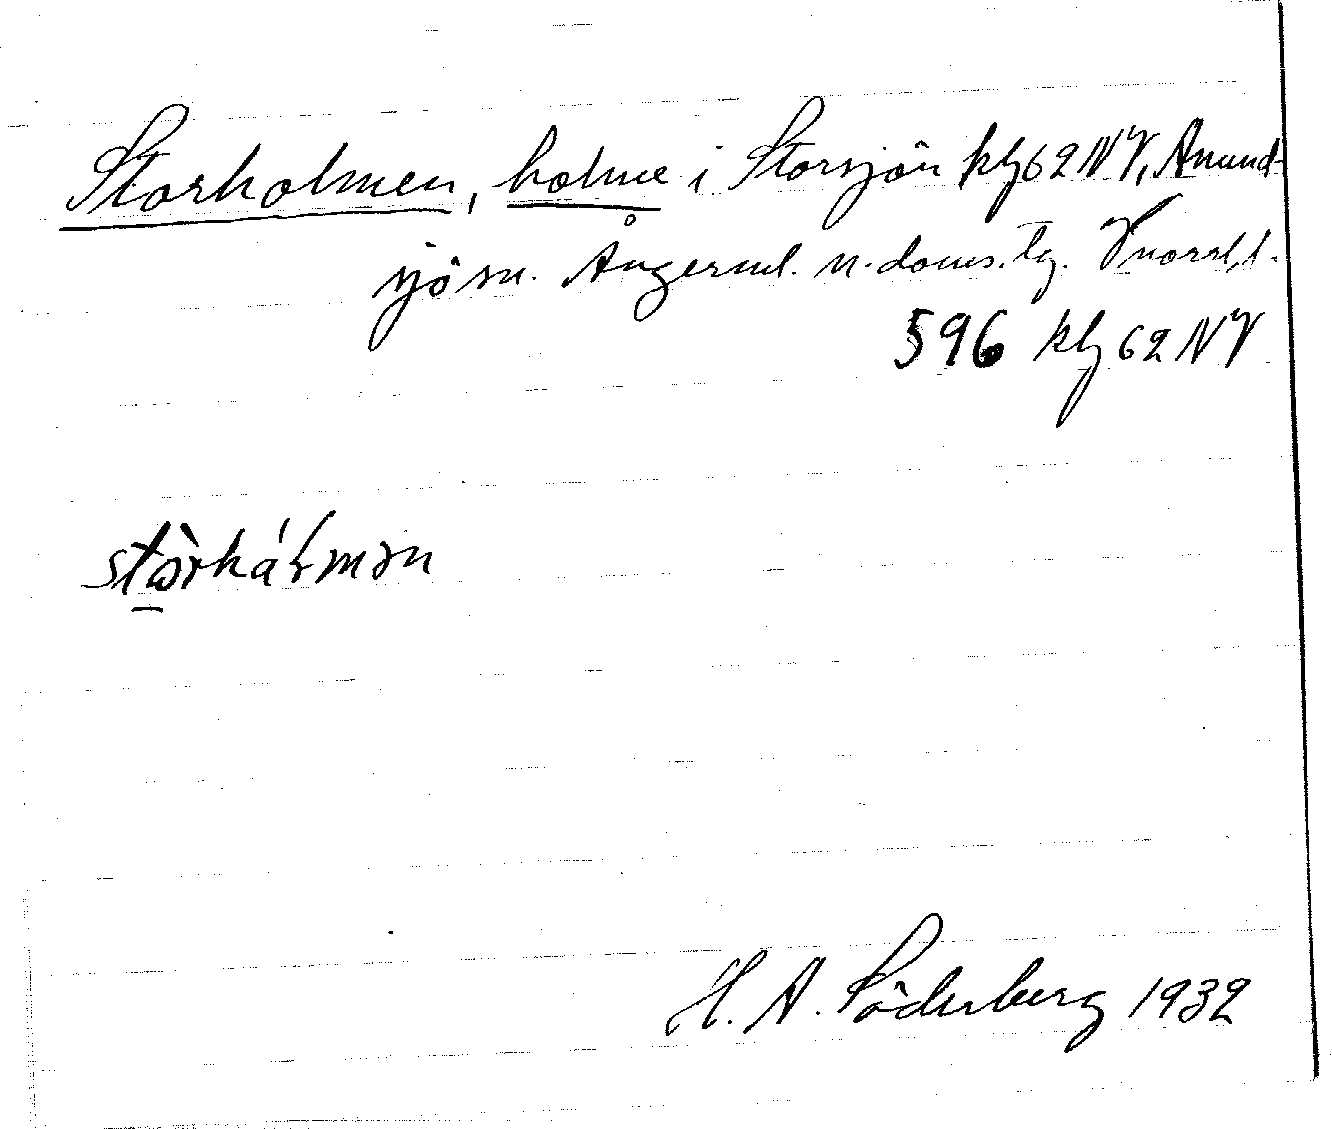 Storholmen, holme i Storsjön kbl 62 NV, Anund-
sjö sn. Ångerml. n. doms. tg. Vnorrl. l.
596 kbl 62 NV
stòrháɽmən
H. A. Söderberg 1932